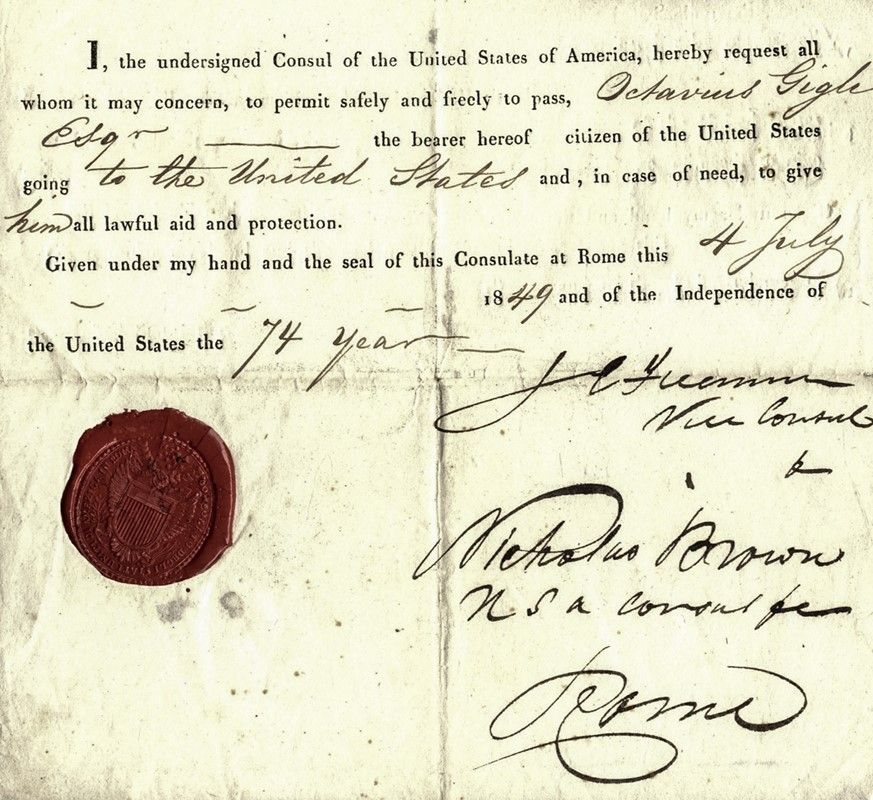 I, the undersigned Consul of the United States of America, hereby request all
whom it may concern, to permit safely and freely to pass, Octavius Gigle
Esqr the bearer hereof citizen of the United States
going to the United States and, in case of need, to give
him all lawful aid and protection.
Given under my hand and the seal of this Consulate at Rome this 4 July
1849 and of the Independence of
the United States the 74 year
J C Freeman
Vice Consul
Nicholas Brown
U S a Consul for
Rome